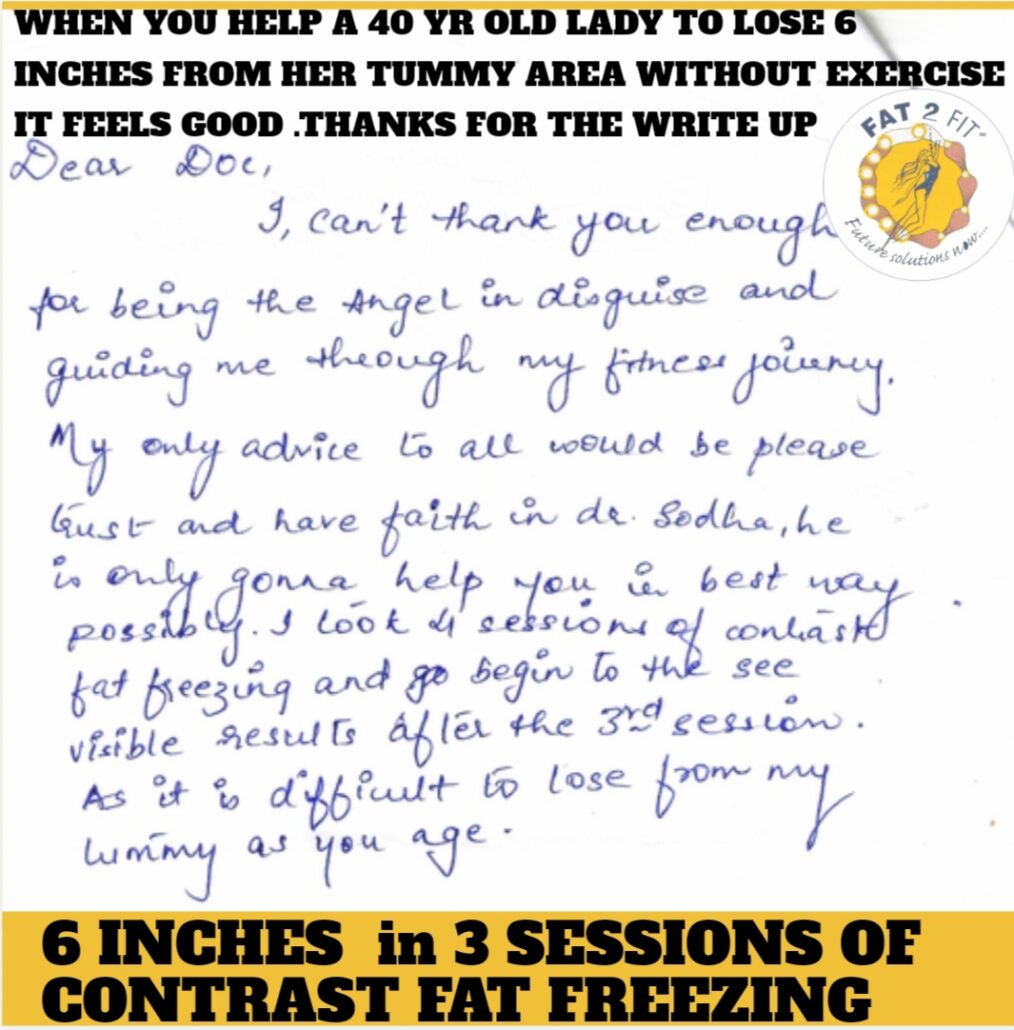 WHEN YOU HELP A 40 YR OLD LADY TO LOSE 6
INCHES FROM HER TUMMY AREA WITHOUT EXERCISE
IT FEELS GOOD .THANKS FOR THE WRITE UP
FAT 2 FIT
Future solutions now....
Dear Doc,
I, can't thank you enough
for being the Angel in disguise and
guiding me through my fitness journey.
My only advice to all would be please
trust and have faith in dr. Sodha, he
is only gonna help you in best way
possibly. I took 4 sessions of contrast
fat freezing and go begin to the see
visible results After the 3rd session.
As it is difficult to lose from my
tummy as you age.
6 INCHES in 3 SESSIONS OF
CONTRAST FAT FREEZING